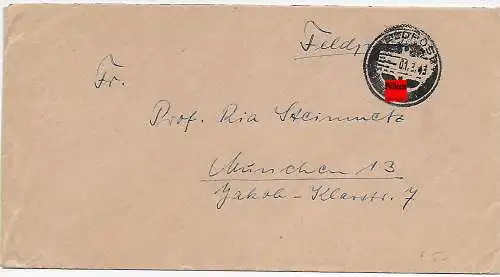 Feldp
FELDPOST
01.3.43
Fr.
Prof. Ria Steinmetz
München 13
Jakob-Klarstr. 7